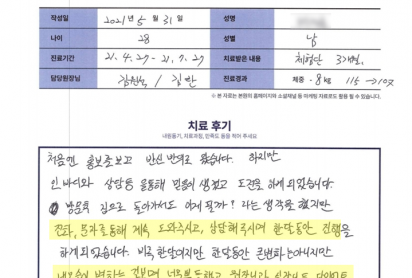 작성일 2021년 5월 31일 성명
나이 28 성별 남
진료기간 21.4.27 - 21.7.27 치료받은 내용 체험단 3개월.
담당원장님 김 / 김반 진료경과 체중 -8kg 115 → 107
※ 본 자료는 본원의 홈페이지와 소셜채널 등 마케팅 자료로도 활용 될 수 있습니다.
치료 후기
내원동기, 치료과정, 만족도 등을 적어 주세요
처음엔 홍보를보고 반신반의로 왔습니다. 하지만
인바디와 상담등을통해 믿음이 생겼고 도전을 하게되었습니다.
방문후 집으로 돌아가서도 이게 될까? 라는 생각을 했지만
전화, 문자를통해 계속 도와주시고, 상담해주시며 한달동안 진행을
하게되었습니다. 비록 한달이지만 한달동안 큰변화는아니지만